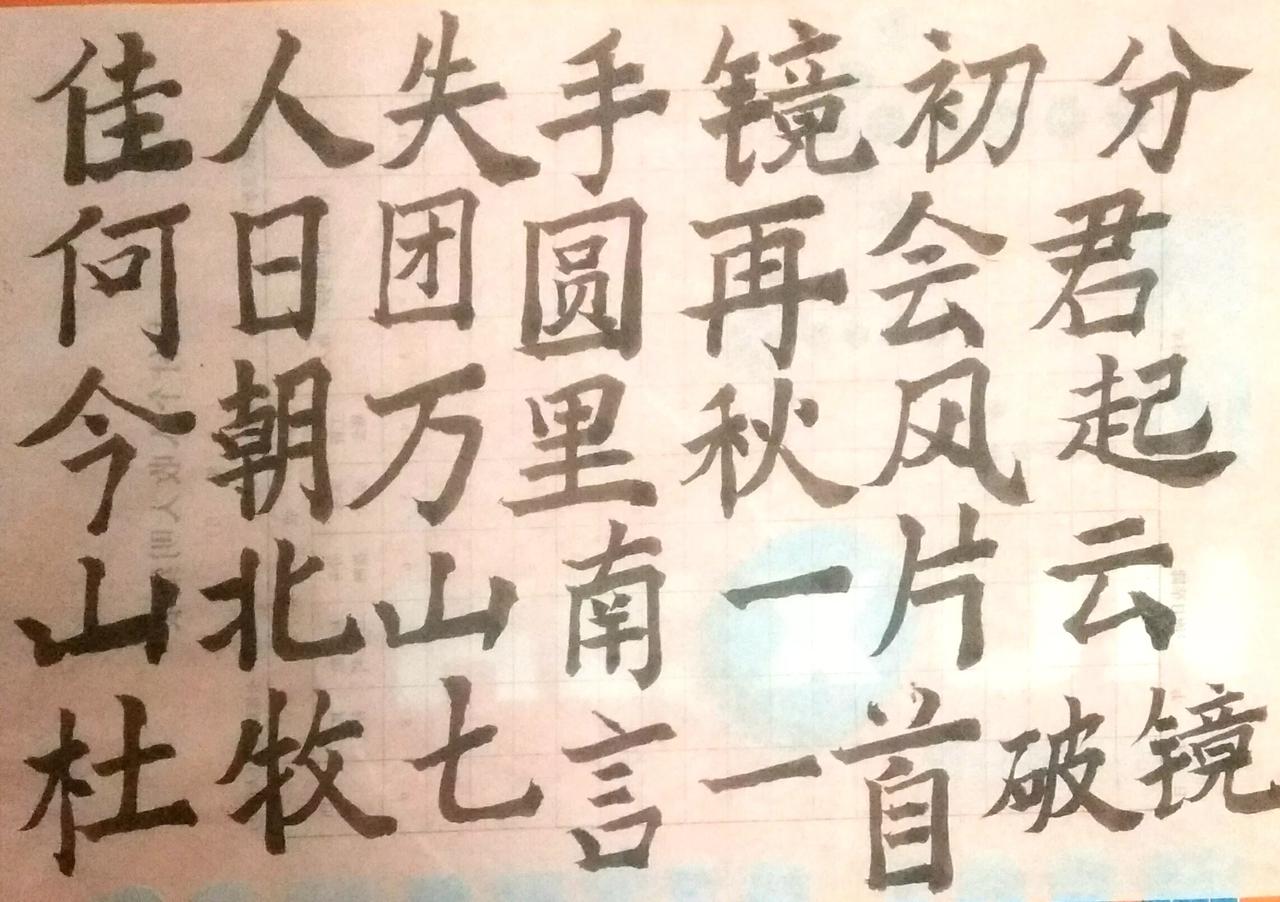 佳人失手镜初分
何日团圆再会君
今朝万里秋风起
山北山南一片云
杜牧七言一首破镜